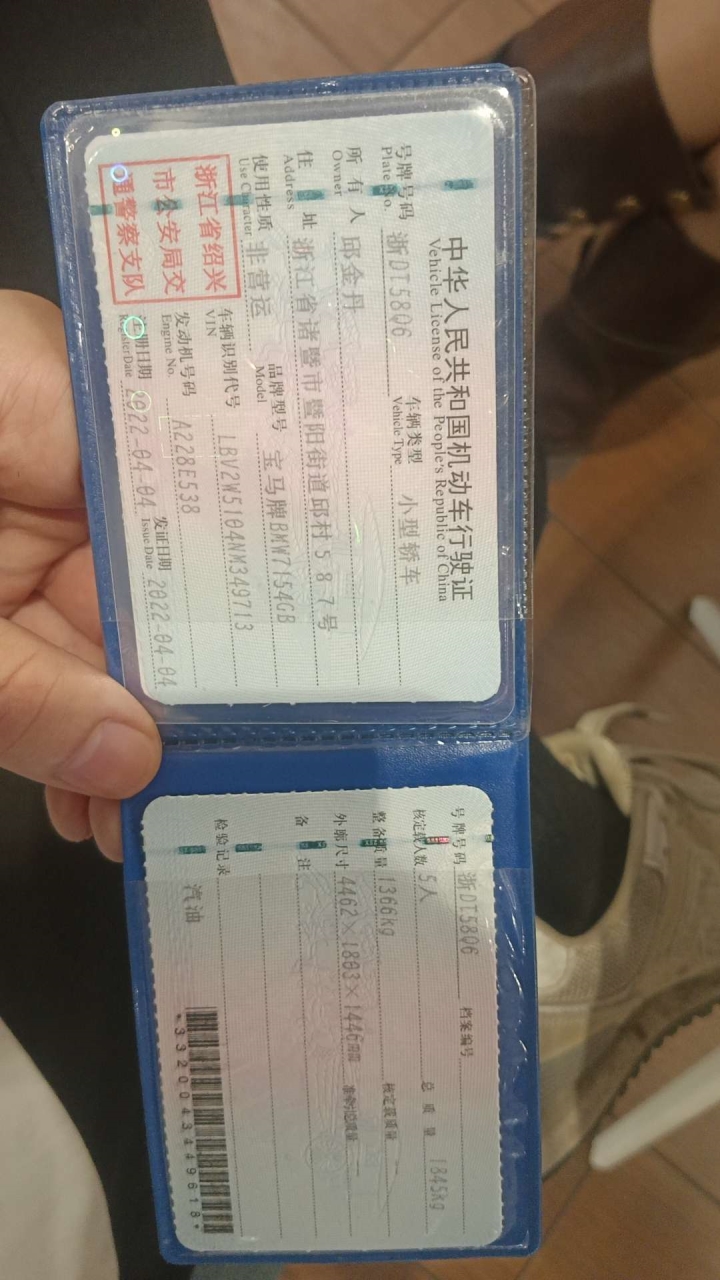 中华人民共和国机动车行驶证
Vehicle License of the People's Republic of China
号牌号码 浙DT58Q6 车辆类型 小型轿车
Plate No. Vehicle Type
所有人 邱金丹
Owner
住址 浙江省诸暨市暨阳街道邱村587号
Address
使用性质 非营运 品牌型号 宝马牌BMW7154GB
Use Character Model
浙江省绍兴
市公安局交
通警察支队
车辆识别代号 LBV2W5104NM349713
VIN
发动机号码 A228E538
Engine No.
注册日期 2022-04-04 发证日期 2022-04-04
Register Date Issue Date
号牌号码 浙DT58Q6 档案编号
核定载人数 5人 总质量 1845kg
整备质量 1366kg 核定载质量
外廓尺寸 4462×1803×1446mm 准牵引总质量
备注
检验记录
汽油
*3320043449618*